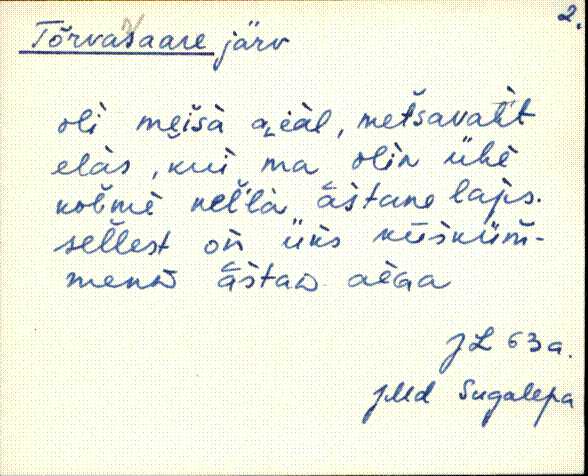 2.
Tõrvasaare järv
oli meìsà aeàl, metsavaɫit
elàs, kui ma olin ühè
kolmè nellà àstane laps.
sellest on üks kùiskùm-
menD àstaD aèga
JL 63a.
JMd Sugalepa